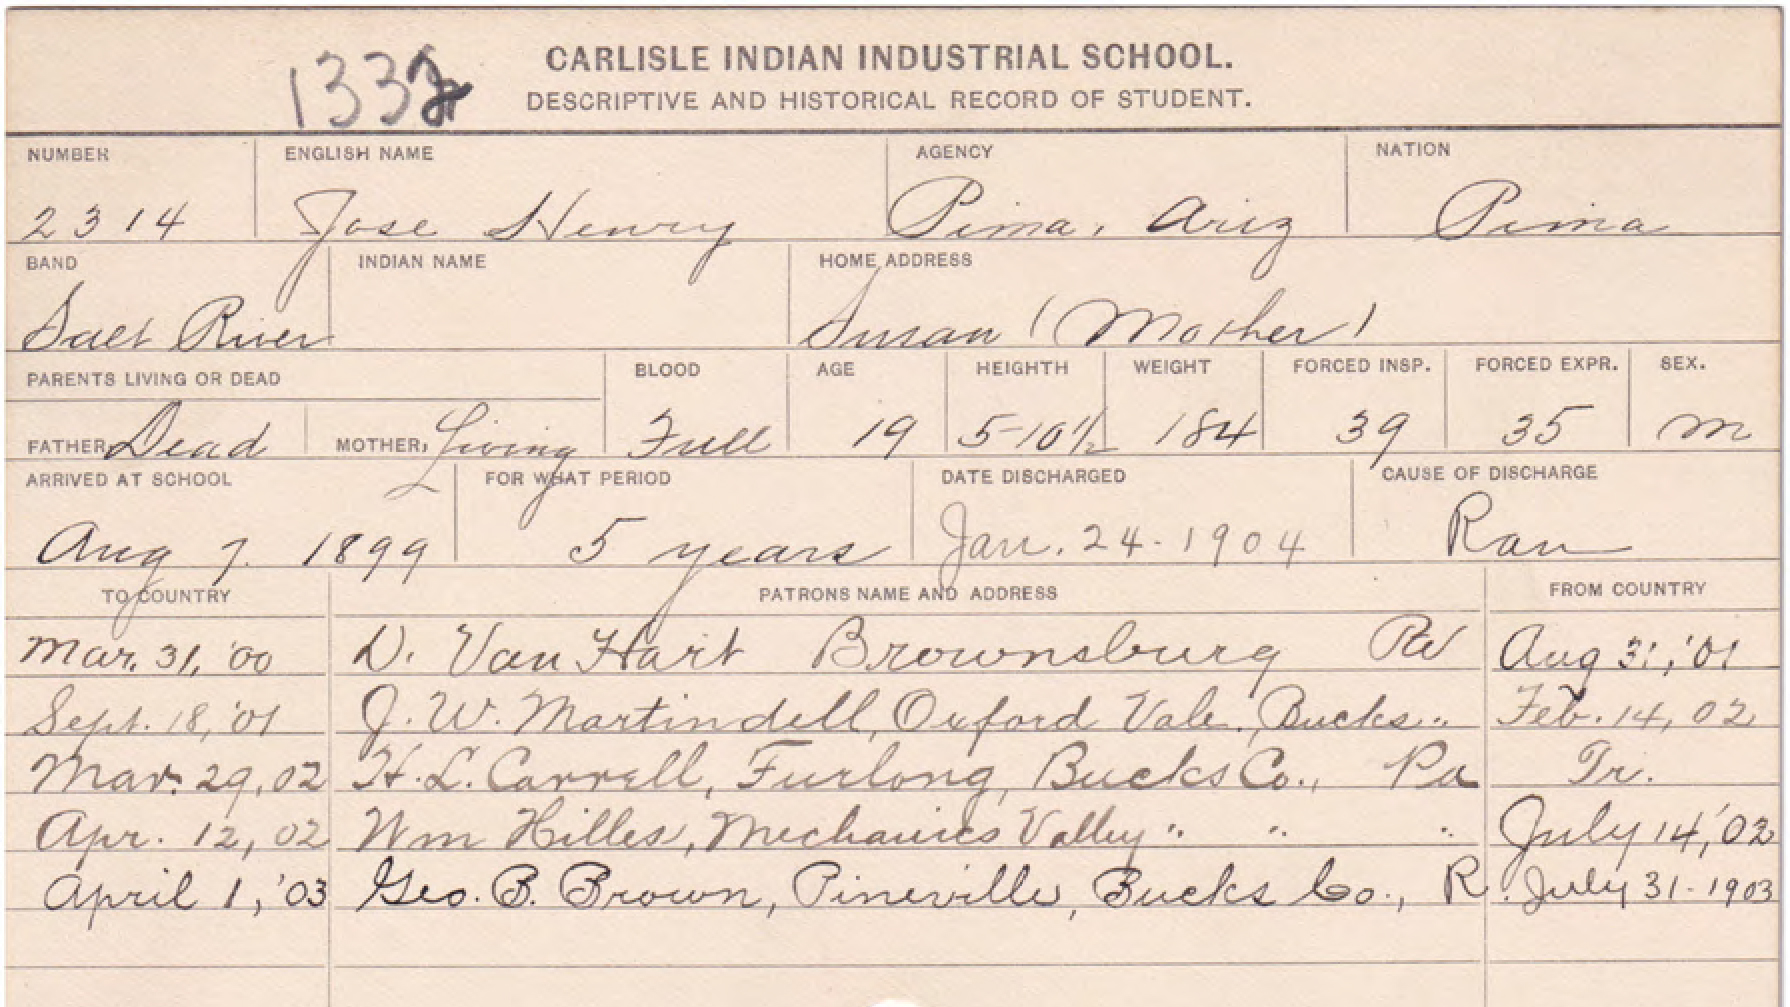 1332
CARLISLE INDIAN INDUSTRIAL SCHOOL.
DESCRIPTIVE AND HISTORICAL RECORD OF STUDENT.
NUMBER ENGLISH NAME AGENCY NATION
2314 Jose Henry Pima, Ariz Pima
BAND INDIAN NAME HOME ADDRESS
Salt River Susan (Mother)
PARENTS LIVING OR DEAD BLOOD AGE HEIGHTH WEIGHT FORCED INSP. FORCED EXPR. SEX.
FATHER, Dead MOTHER, Living Full 19 5-10½ 184 39 35 M
ARRIVED AT SCHOOL FOR WHAT PERIOD DATE DISCHARGED CAUSE OF DISCHARGE
Aug 7. 1899 5 years Jan. 24-1904 Ran
TO COUNTRY PATRONS NAME AND ADDRESS FROM COUNTRY
Mar. 31, '00 D. Van Hart Brownsburg Pa Aug 31, '01
Sept. 18, '01 J. W. Martindell, Oxford Vale, Bucks " Feb. 14, 02
Mar. 29, 02 H. L. Carrell, Furlong, Bucks Co., Pa Tr.
Apr. 12, 02 Wm Hilles, Mechanics Valley " " " July 14, '02
April 1, '03 Geo. B. Brown, Pineville, Bucks Co., P. July 31-1903